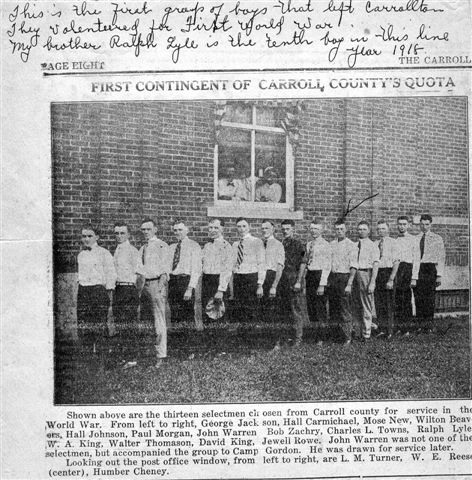 This is the first group of boys that left Carrollton
They volunteered for First World War.
My brother Ralph Lyle is the tenth boy in this line
Year 1918.
PAGE EIGHT
THE CARROLL
FIRST CONTINGENT OF CARROLL COUNTY'S QUOTA
Shown above are the thirteen selectmen chosen from Carroll county for service in the
World War. From left to right, George Jackson, Hall Carmichael, Mose New, Wilton Beav-
ers, Hall Johnson, Paul Morgan, John Warren Bob Zachry, Charles L. Towns, Ralph Lyle
W. A. King, Walter Thomason, David King, Jewell Rowe. John Warren was not one of the
selectmen, but accompanied the group to Camp Gordon. He was drawn for service later.
Looking out the post office window, from left to right, are L. M. Turner, W. E. Reese
(center), Humber Cheney.